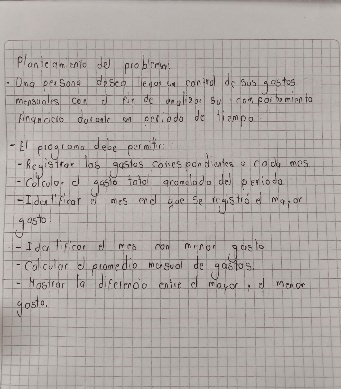 Planteamiento del problema
- Una persona desea llevar un control de sus gastos
mensuales con el fin de analizar su comportamiento
financiero durante un periodo de tiempo.
- El programa debe permitir:
- Registrar los gastos correspondientes a cada mes
- Calcular el gasto total acumulado del periodo
- Identificar el mes en el que se registró el mayor
gasto.
- Identificar el mes con menor gasto
- Calcular el promedio mensual de gastos.
- Mostrar la diferencia entre el mayor y el menor
gasto.